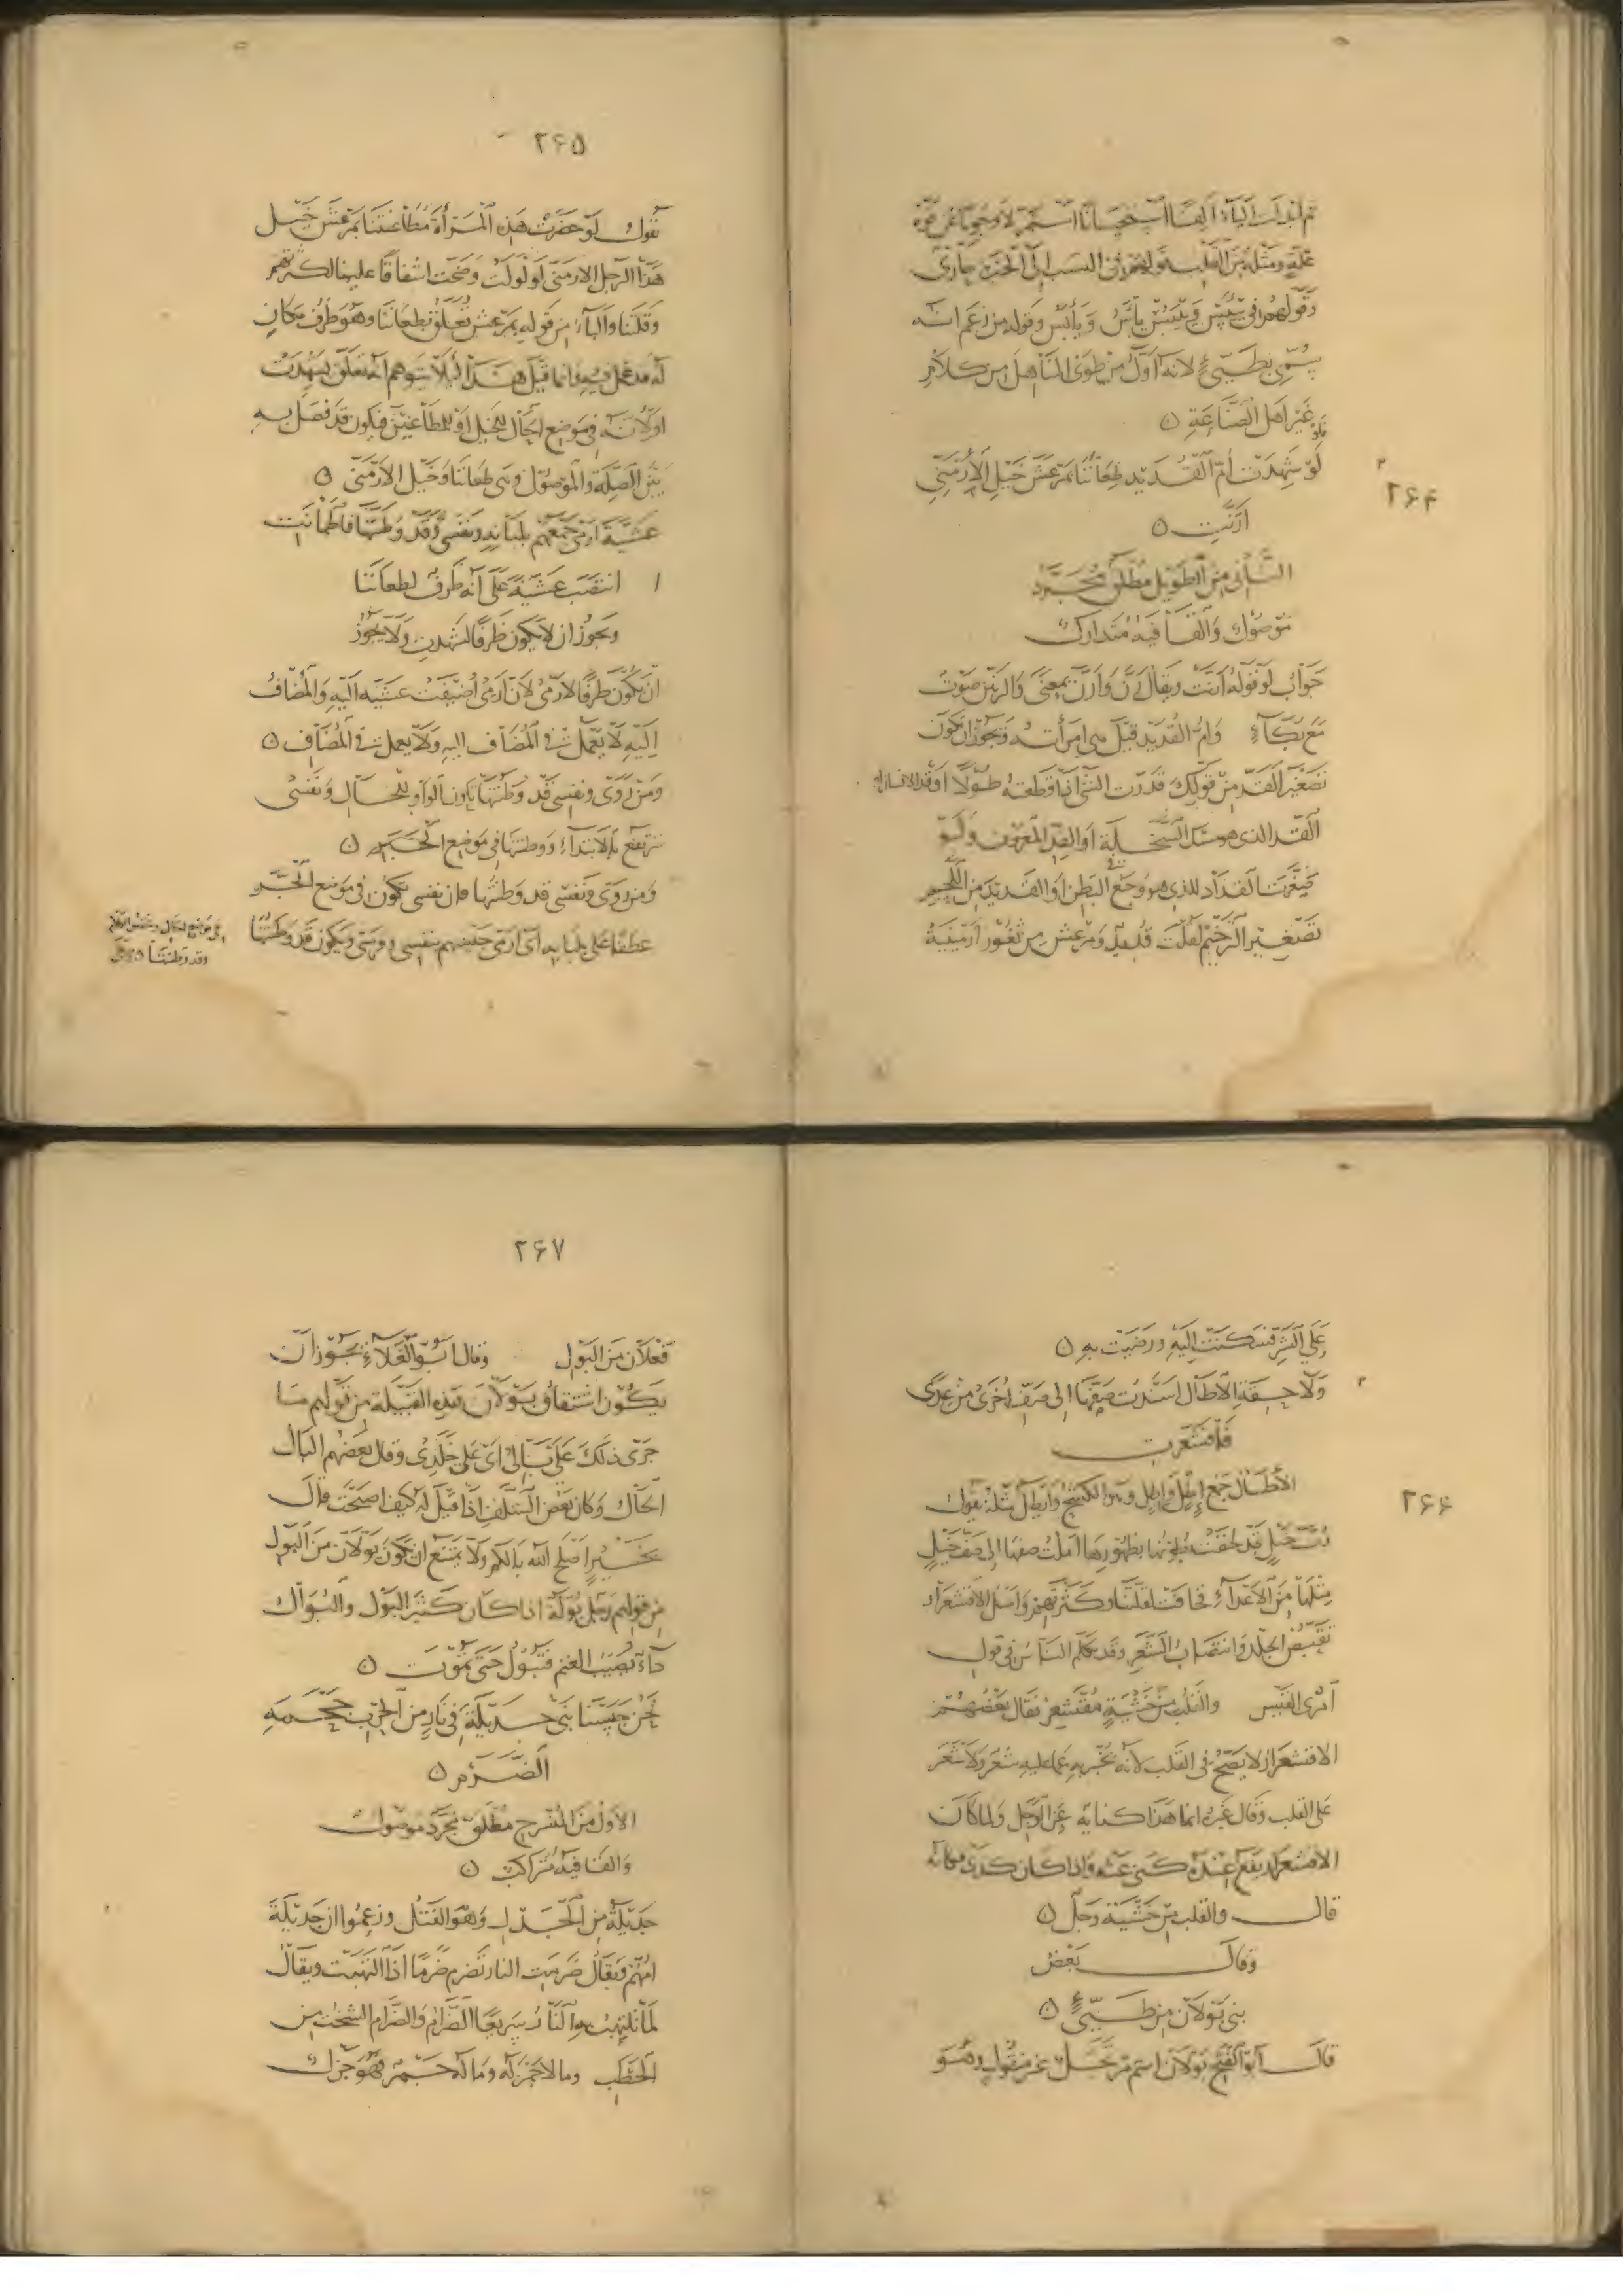 ثم ابدلت الياء الفا استحسانا استمر لا وجوبا عن قوة
علة ومثله من القلب قولهم في النسب الى الحيرة حارى
وقولهم في ييس وييبس يائس ويابس وقول من زعم انه
سمى بطيئ لانه اول من طوى المناهل من كلام
غير اهل الصناعة
٢٦٤
لو شهدت ام القديد طعاننا بمرعش خيل الارمنى
ارنت
الثانى من الطويل مطلق مجرد
موصول والقافية متدارك
جواب لو قوله ارنت ويقال رن وارن بمعنى والرنين صوت
مع بكاء وام القديد قيل هى امرأته ويجوز ان يكون
تصغير القد من قولك قددت الشئ اذا قطعته طولا او قد الانسان او
القد الذى هو مسك السخلة او القد المعروف ولو
صغرت القداد الذى هو وجع البطن او القديد من اللحم
تصغير الترخيم لقلت قديد ومرعش من ثغور ارمينية
٢٦٥
يقول لو حضرت هذه المرأة مطاعنتنا بمرعش خيل
هذا الرجل الارمنى لولولت وضجت اشفاقا علينا لكثرتهم
وقلتنا والباء من قوله بمرعش تعلق بطعاننا وهو ظرف مكان
له قد عمل فيه وانما قيل هذا لئلا يتوهم انه تعلق بشهدت
او لانه فى موضع الحال للخيل او للطاعنين فيكون قد فصل به
بين الصلة والموصول وهى طعاننا وخيل الارمنى
عشية ارمى جمعهم بلبانه ونفسى وقد وطنتها فاطمأنت
انتصب عشية على انه ظرف لطعاننا
ويجوز ان لا يكون ظرفا لشهدت ولا يجوز
ان يكون ظرفا لارمى لان ارمى اضيفت عشية اليه والمضاف
اليه لا يعمل فى المضاف اليه ولا يعمل فى المضاف
ومن روى ونفسى قد وطنتها يكون الواو للحال ونفسى
ترتفع بالابتداء ووطنتها فى موضع الخبر
ومن روى ونفسى قد وطنتها فان نفسى تكون فى موضع الجر
عطفا على بلبانه اى ارمى جميعهم بنفسى وفرسى ويكون قد وطنتها
فى موضع الحال
وقد وطنتها
٢٦٦
على الشر فسكنت اليه ورضيت به
ولاحقة الاطال اسندت صفها الى صف اخرى من عدى
فاقشعرت
الاطال جمع اطل واطل وهو الكشح وايطل مثله يقول
رب خيل قد لحقت بطونها بظهورها املت صفها الى صف خيل
مثلها من الاعداء فخافت لقلتنا وكثرتهم واصل الاقشعرار
تقبض الجلد وانتصاب الشعر وقد تكلم الناس فى قول
امرئ القيس والقلب من خشية مقشعر فقال بعضهم
الاقشعرار لا يصح فى القلب لانه يخبر به عما عليه شعر ولا شعر
على القلب وقال غيره انما هذا كناية عن الوجل ولما كان
الاقشعرار يقع عنده كنى عنه واذا كان كذى فكانه
قال والقلب من خشية وجل
وقال بعض
بنى بولان من طيئ
قال ابو الفتح بولان اسم مرتجل غير منقول وهو
٢٦٧
فعلان من البول وقال ابو العلاء يجوز ان
يكون اشتقاق بولان هذه القبيلة من قولهم ما
جرى ذلك على بالى اى على خلدى وقال بعضهم البال
الحال وكان بعض السلف اذا قيل له كيف اصبحت قال
بخير اصلح الله بالكم ولا يمتنع ان يكون بولان من البول
من قولهم رجل بولة اذا كان كثير البول والبوال
داء يصيب الغنم فتبول حتى تموت
نحن حبسنا بنى جديلة فى نار من الحرب جحمة
الضرم
الاول من المنسرح مطلق مجرد موصول
والقافية متراكب
جديلة من الجدل وهو الفتل وزعموا ان جديلة
امهم ويقال ضرمت النار تضرم ضرما اذا التهبت ويقال
لما تلتهب به النار سريعا الضرام والضرام الشخت من
الحطب وما لا جمر له وما له جمر فهو جزل